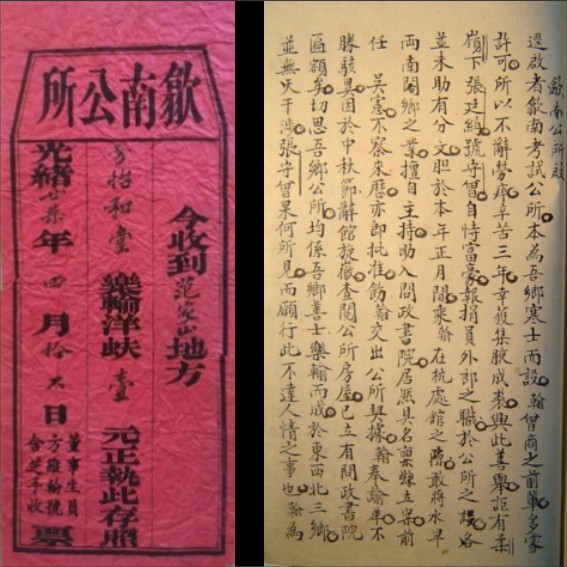 歙南公所
今收到范家山地方
芳怡和堂
樂輸洋蚨壹元正執此存照
光緒廿柒年四月拾六日
董事生員
方維翰號
含芝手收
票
歙南公所啟
逕啟者歙南考試公所本為吾鄉寒士而設翰曾商之前輩多蒙
許可所以不辭勞瘁辛苦三年幸獲集腋成裘興此善舉詎有柔
嶺下張廷絹號守曾自恃富豪報捐員外郎之職於公所之誤各
並未助有分文胆於本年正月間乘翰在杭處館之際敢將水旱
兩南闔鄉之業擅自主持助入問政書院居然具名稟縣立案前
任吳憲不察來歷亦即批准飭翰交出公所契據翰奉諭單不
勝駭異因於中秋節辭館旋徽查閱公所房屋已立有問政書院
匾額矣切思吾鄉公所均係吾鄉善士樂輸而成於東西北三鄉
並無天干涉張守曾果何所見而願行此不達人情之事也翰為